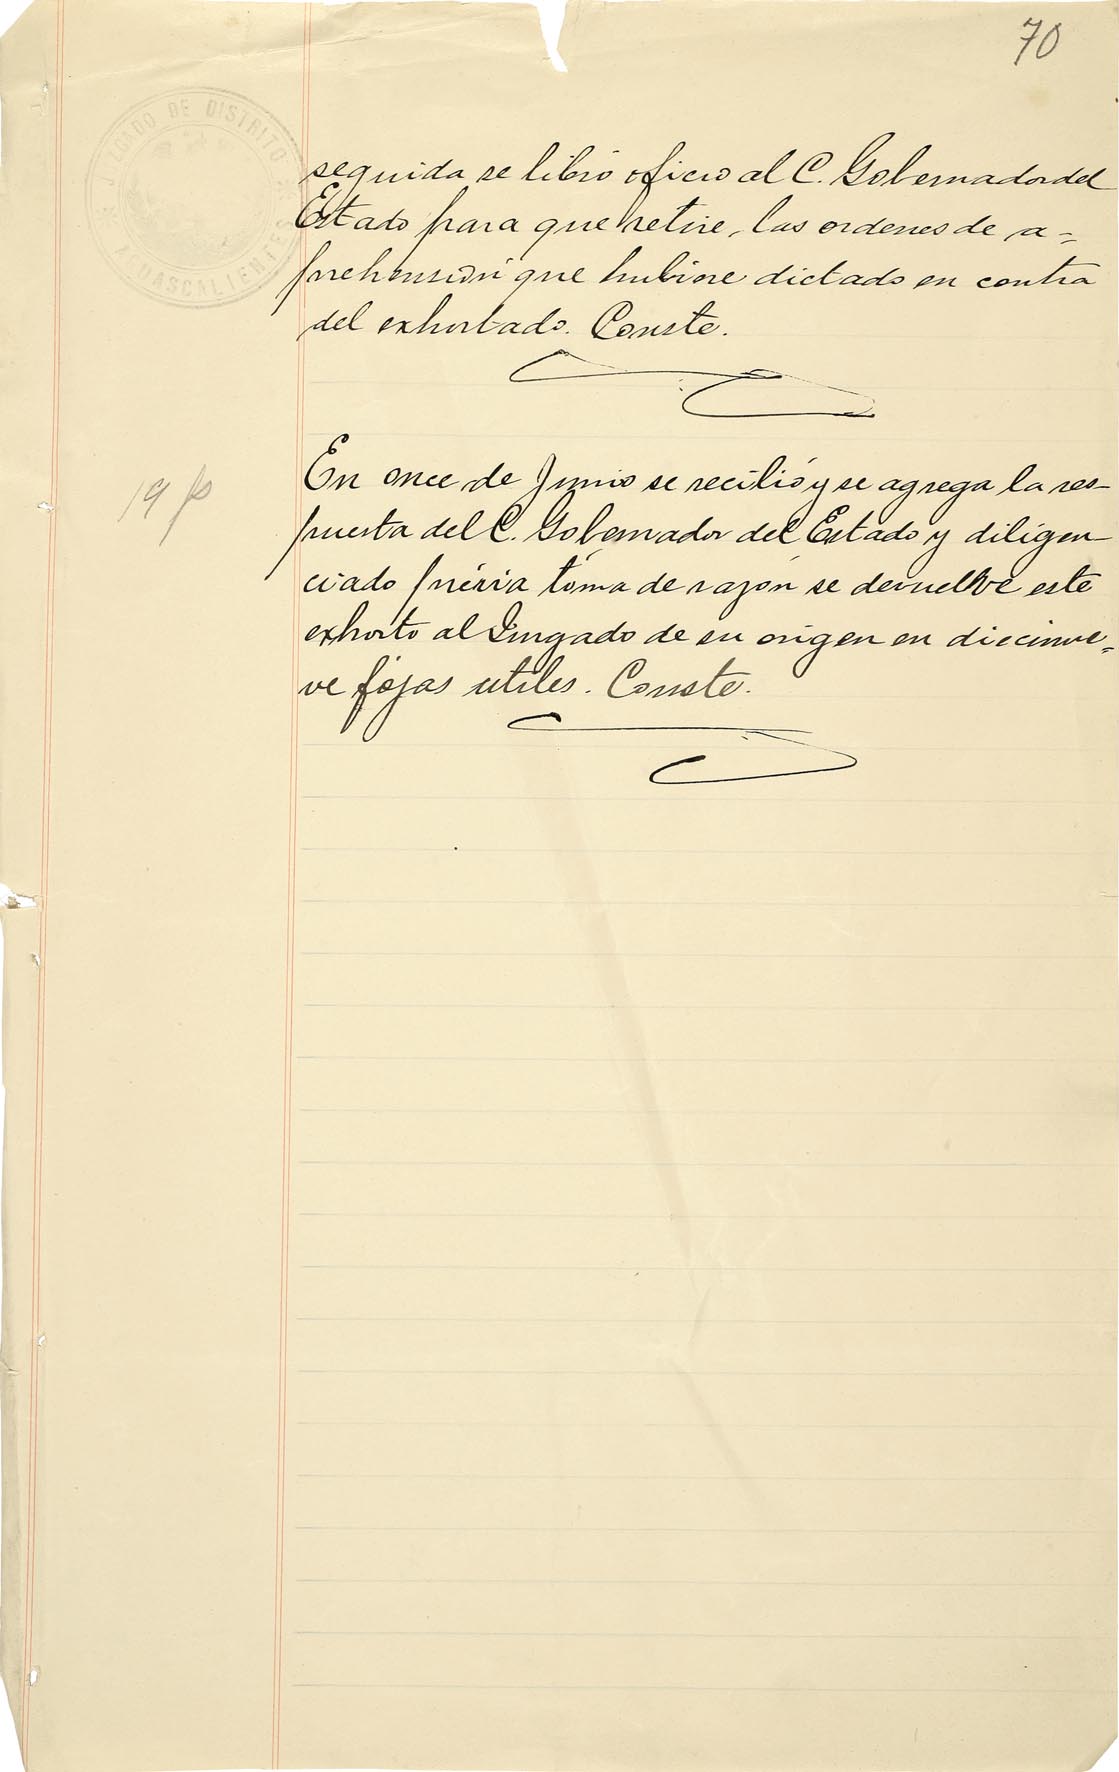 70
JUZGADO DE DISTRITO
AGUASCALIENTES
seguida se libró oficio al C. Gobernador del
Estado para que retire, las ordenes de a=
prehensión que hubiere dictado en contra
del exhortado. Conste.
19 f
En once de Junio se recibió y se agrega la res-
puesta del C. Gobernador del Estado y diligen-
ciado prévia toma de razón se devuelve este
exhorto al Juzgado de su origen en diecinue=
ve fojas utiles. Conste.